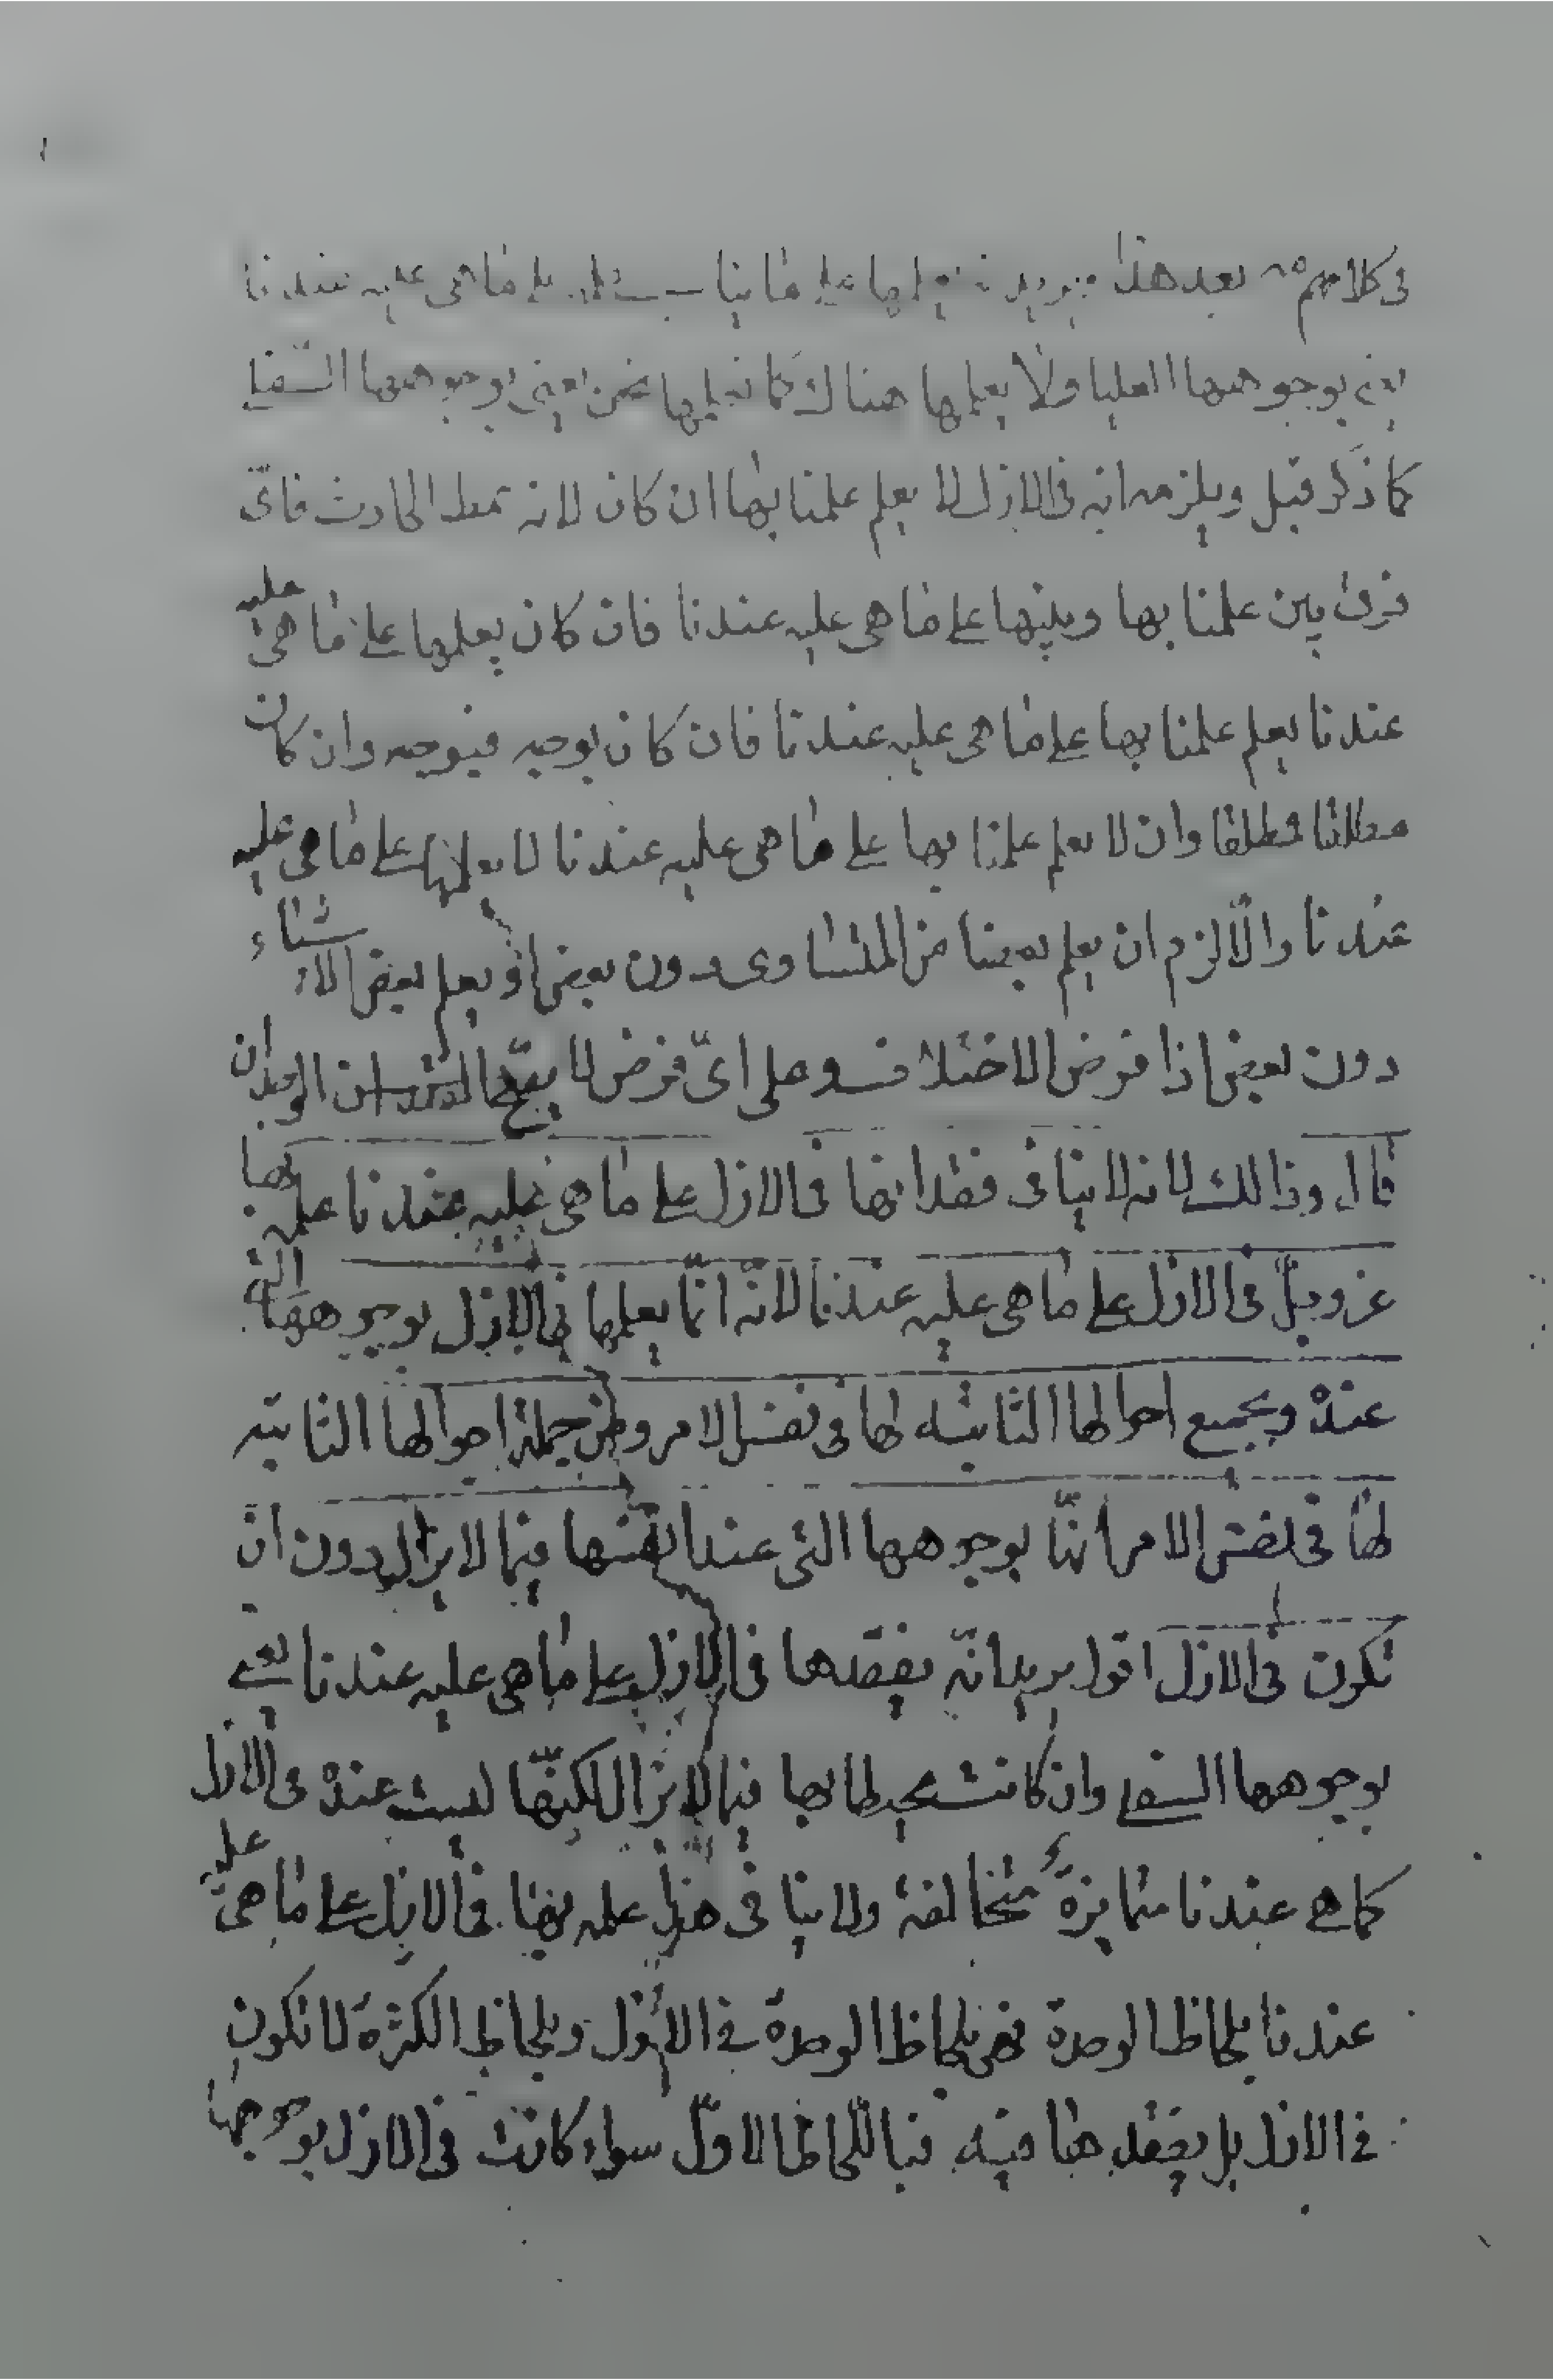 فى كلامهم بعد هذا يعلمها على ما هى عليه عندنا
يعنى بوجوهها العليا ولا يعلمها هناك كما نعلمها نحن يعنى بوجوهها السفلى
كما ذكر قبل ويلزمه انه فى الازل لا يعلم علمنا بها ان كان لانه نمط الحادث فاىّ
فرق بين علمنا بها وبينها على ما هى عليه عندنا فان كان يعلمها على ما هى عليه
عندنا يعلم علمنا بها على ما هى عليه عندنا فان كان بوجه فبوجه وان كان
مطلقا فمطلقا وان لا يعلم علمنا بها على ما هى عليه عندنا لا يعلمها على ما هى عليه
عندنا والّا لزم ان يعلم بعضا من المتساوى دون بعض او يعلم بعض الاشياء
دون بعض اذا فرض الاختلاف وعلى اىّ فرض لا يصحّ
قال وذلك لانه لا ينافى فقدانها فى الازل على ما هى عليه عندنا علمه بها
عز وجلّ فى الازل على ما هى عليه عندنا لانّه انّما يعلمها فى الازل بوجوهها التى
عنده وبجميع احوالها الثابتة لها فى نفس الامر ومن جملة احوالها الثابتة
لها فى نفس الامر انّها بوجوهها التى عند انفسها فيما لا يزال دون ان
تكون فى الازل اقول يريد انّه يفقدها فى الازل على ما هى عليه عندنا يعنى
بوجوهها السفلى وان كانت يحيط بها فيما لا يزال لكنّها ليست عنده فى الازل
كما هى عندنا متمايزة متخالفة ولا ينافى هذا علمه بها فى الازل على ما هى عليه
عندنا بلحاظ الوحدة فهى بلحاظ الوحدة فى الازل وبلحاظ الكثرة لا تكون
فى الازل بل يفقدها فيه فباللحاظ الاوّل سواء كانت فى الازل بوجوهها